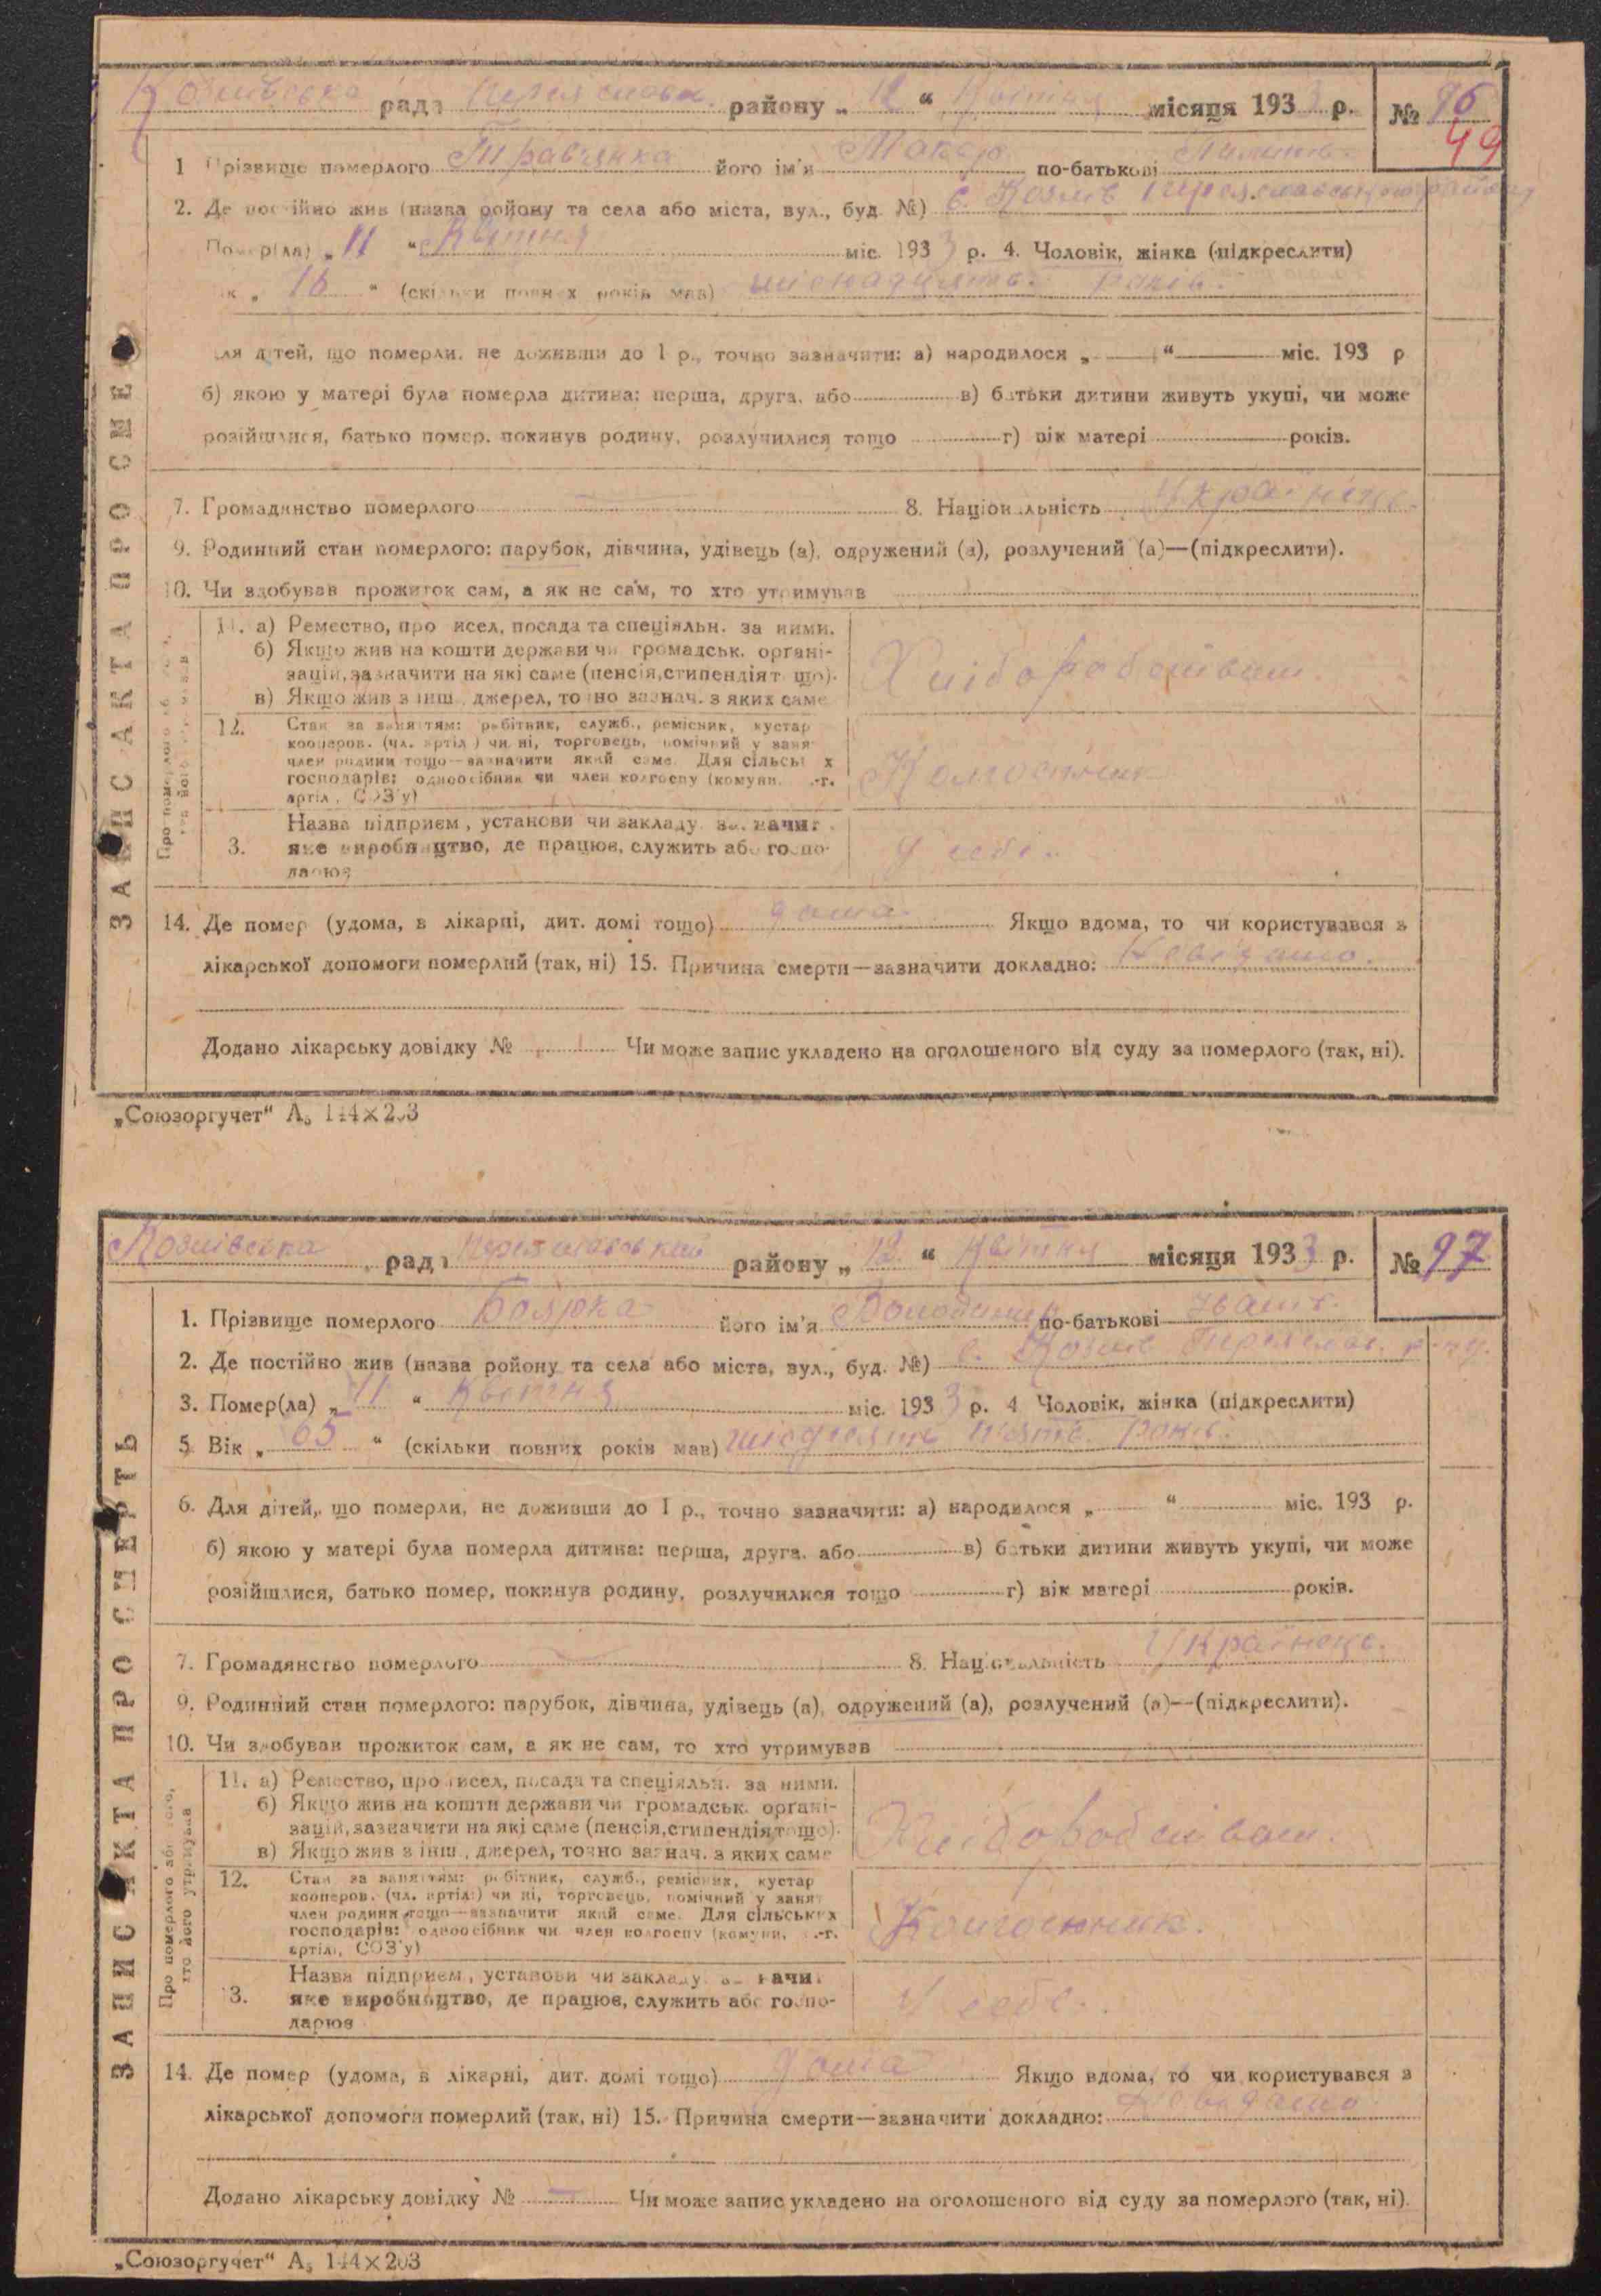 Козлівська рада Переяслав. району „ 12 “ Квітня місяця 1933 р. № 96
49
1 Прізвище померлого Травянка його ім'я Макар по-батькові
2. Де постійно жив (назва ройону та села або міста, вул., буд. №) с. Козлів Переяславського району
Помер(ла) „ 11 “ Квітня міс. 1933 р. 4. Чоловік, жінка (підкреслити)
к „ 16 “ (скільки повних років мав) шіснадцять років.
для дітей, що померли, не доживши до 1 р., точно зазначити: а) народилося „ “ міс. 193 р
б) якою у матері була померла дитина: перша, друга, або в) батьки дитини живуть укупі, чи може
розійшлися, батько помер, покинув родину, розлучилися тощо г) вік матері років.
7. Громадянство померлого 8. Національність Українець.
9. Родинний стан померлого: парубок, дівчина, удівець (а), одружений (а), розлучений (а)—(підкреслити).
10. Чи здобував прожиток сам, а як не сам, то хто утримував
11. а) Ремество, про исел, посада та спеціяльн. за ними.
б) Якщо жив на кошти держави чи громадськ. органі-
зацій, зазначити на які саме (пенсія, стипендіят що).
в) Якщо жив з інш., джерел, точно зазнач. з яких саме
Хліборобством.
12. Стан за заняттям: робітник, служб., ремісник, кустар
кооперов. (чл. артіл.) чи ні, торговець, помічний у занят
член родини тощо—зазначити який саме. Для сільськ х
господарів: одноосібник чи член колгоспу (комуни, .-г.
артіл., СОЗ'у)
Колгоспник
3. Назва підприєм., установи чи закладу, зазначит
яке виробництво, де працює, служить або госпо-
дарює
У себе.
14. Де помер (удома, в лікарні, дит. домі тощо) дома Якщо вдома, то чи користувався з
лікарської допомоги померлий (так, ні) 15. Причина смерти—зазначити докладно: Невідомо.
Додано лікарську довідку № Чи може запис укладено на оголошеного від суду за померлого (так, ні).
ЗАПИС АКТА ПРО СМЕ
Про померлого або того,
„Союзоргучет“ А₅ 144×203
Козлівська рада Переяславський району „ 12. “ Квітня місяця 1933 р. № 97
1. Прізвище померлого Боярка його ім'я Володимир по-батькові Іванов.
2. Де постійно жив (назва ройону та села або міста, вул., буд. №) с. Козлів Переяслав. р-ну.
3. Помер(ла) „ 11 “ Квітня міс. 1933 р. 4 Чоловік, жінка (підкреслити)
5. Вік „ 65 “ (скільки повних років мав) шісдесять п'ять років.
6. Для дітей, що померли, не доживши до 1 р., точно зазначити: а) народилося „ “ міс. 193 р.
б) якою у матері була померла дитина: перша, друга, або в) батьки дитини живуть укупі, чи може
розійшлися, батько помер, покинув родину, розлучилися тощо г) вік матері років.
7. Громадянство померлого 8. Національність Українець.
9. Родинний стан померлого: парубок, дівчина, удівець (а), одружений (а), розлучений (а)—(підкреслити).
10. Чи здобував прожиток сам, а як не сам, то хто утримував
11. а) Ремество, про исел, посада та спеціяльн. за ними.
б) Якщо жив на кошти держави чи громадськ. органі-
зацій, зазначити на які саме (пенсія, стипендія тощо).
в) Якщо жив з інш., джерел, точно зазнач. з яких саме
Хліборобством.
12. Стан за заняттям: робітник, служб., ремісник, кустар
кооперов. (чл. артіл.) чи ні, торговець, помічний у занят
член родини тощо—зазначити який саме. Для сільських
господарів: одноосібник чи член колгоспу (комуни, .-г.
артіл., СОЗ'у)
Колгоспник.
3. Назва підприєм., установи чи закладу, зазначи
яке виробництво, де працює, служить або госпо-
дарює
У себе.
14. Де помер (удома, в лікарні, дит. домі тощо) дома Якщо вдома, то чи користувався з
лікарської допомоги померлий (так, ні) 15. Причина смерти—зазначити докладно: Невідомо.
Додано лікарську довідку № Чи може запис укладено на оголошеного від суду за померлого (так, ні).
ЗАПИС АКТА ПРО СМЕРТЬ
Про померлого або того,
хто його утримував
„Союзоргучет“ А₅ 144×203